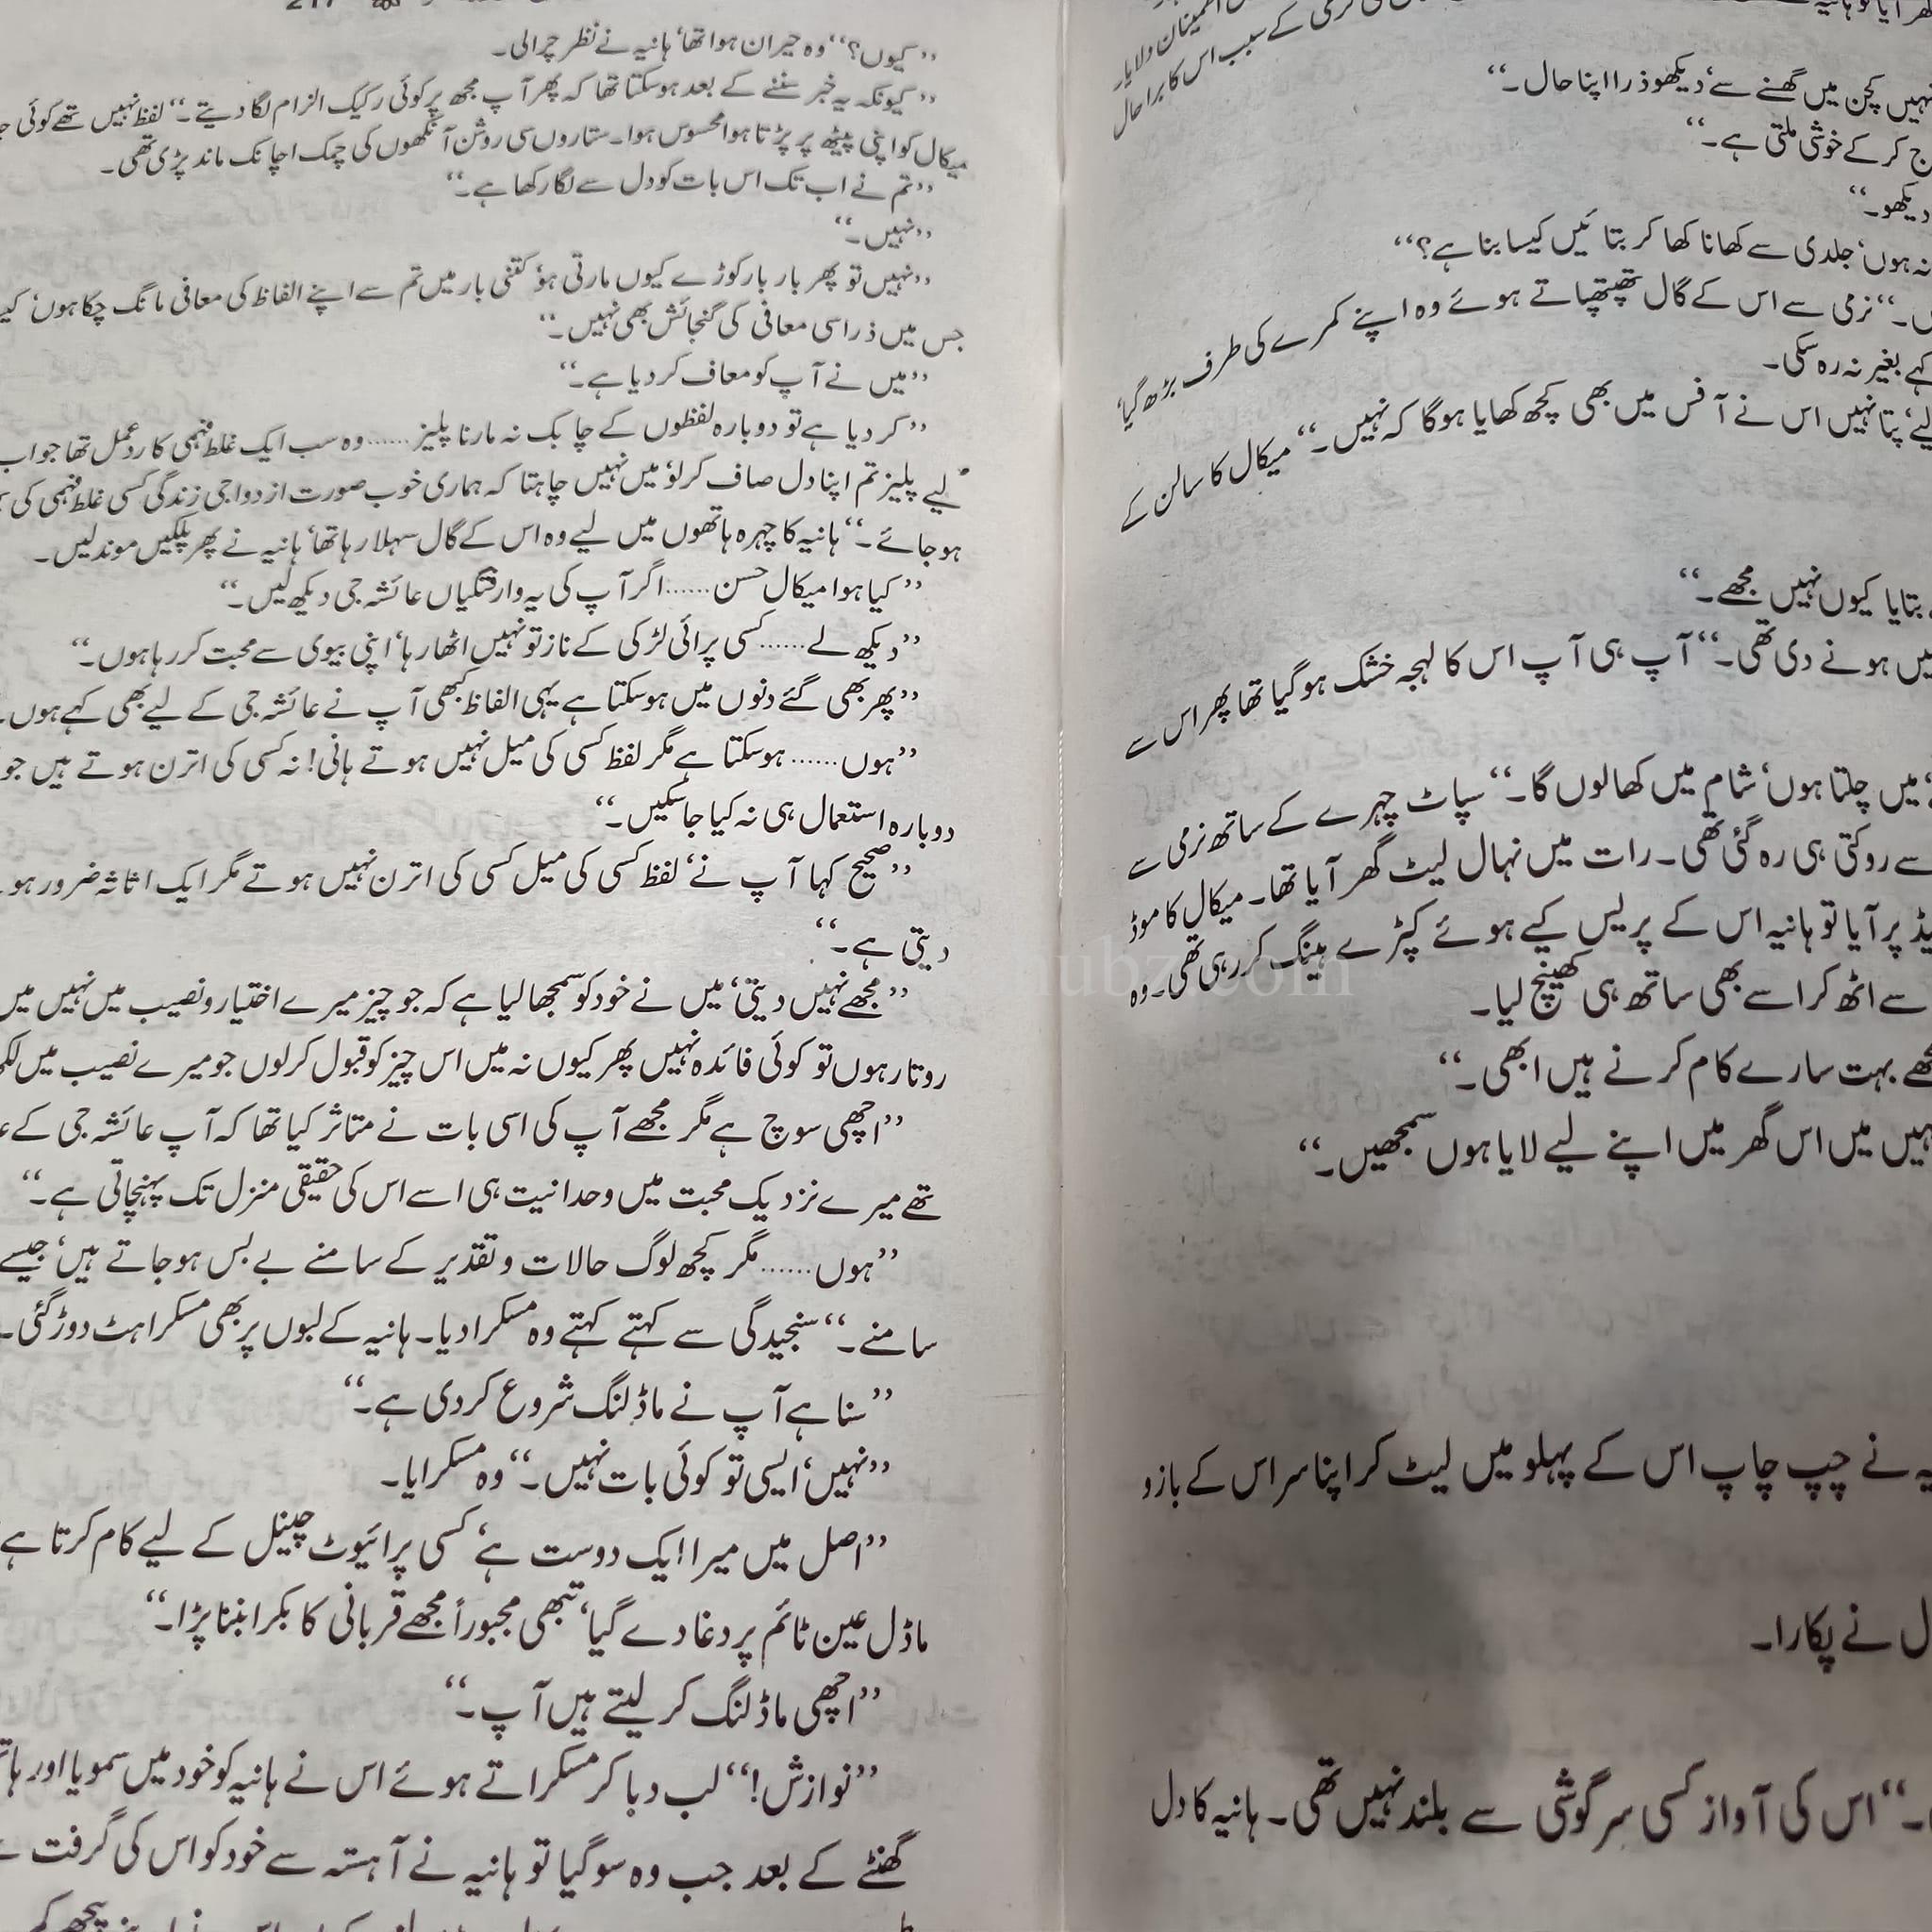 نہیں کچن میں گھسنے سے‘ دیکھو ذرا اپنا حال۔‘‘
کر کے خوشی ملتی ہے۔‘‘
دیکھو۔‘‘
نہ ہوں‘ جلدی سے کھانا کھا کر بتائیں کیسا بنا ہے؟‘‘
۔‘‘ نرمی سے اس کے گال تھپتھپاتے ہوئے وہ اپنے کمرے کی طرف بڑھ گیا‘
کہے بغیر نہ رہ سکی۔
لیے‘ پتا نہیں اس نے آفس میں بھی کچھ کھایا ہوگا کہ نہیں۔‘‘ میکال کا سالن کے
بتایا کیوں نہیں مجھے۔‘‘
ہونے دی تھی۔‘‘ آپ ہی آپ اس کا لہجہ خشک ہوگیا تھا پھر اس سے
میں چلتا ہوں‘ شام میں کھالوں گا۔‘‘ سپاٹ چہرے کے ساتھ نرمی سے
سے روکتی ہی رہ گئی تھی۔ رات میں نہال لیٹ گھر آیا تھا۔ میکال کا موڈ
پر آیا تو ہانیہ اس کے پریس کیے ہوئے کپڑے ہینگ کررہی تھی۔ وہ
سے اٹھ کر اسے بھی ساتھ ہی کھینچ لیا۔
بہت سارے کام کرنے ہیں ابھی۔‘‘
میں اس گھر میں اپنے لیے لایا ہوں سمجھیں۔‘‘
نے چپ چاپ اس کے پہلو میں لیٹ کر اپنا سر اس کے بازو
نے پکارا۔
۔‘‘ اس کی آواز کسی سرگوشی سے بلند نہیں تھی۔ ہانیہ کا دل
’’کیوں؟‘‘ وہ حیران ہوا تھا‘ ہانیہ نے نظر چرالی۔
’’کیونکہ یہ خبر سننے کے بعد ہوسکتا تھا کہ پھر آپ مجھ پر کوئی رکیک الزام لگا دیتے۔‘‘ لفظ نہیں تھے کوئی
میکال کو اپنی پیٹھ پر پڑتا ہوا محسوس ہوا۔ ستاروں سی روشن آنکھوں کی چمک اچانک ماند پڑی تھی۔
’’تم نے اب تک اس بات کو دل سے لگا رکھا ہے۔‘‘
’’نہیں۔‘‘
’’نہیں تو پھر بار بار کوڑے کیوں مارتی ہو‘ کتنی بار میں تم سے اپنے الفاظ کی معافی مانگ چکا ہوں‘
جس میں ذرا سی معافی کی گنجائش بھی نہیں۔‘‘
’’میں نے آپ کو معاف کردیا ہے۔‘‘
’’کردیا ہے تو دوبارہ لفظوں کے چابک نہ مارنا پلیز...... وہ سب ایک غلط فہمی کا ردعمل تھا جو اب
لیے پلیز تم اپنا دل صاف کرلو‘ میں نہیں چاہتا کہ ہماری خوب صورت ازدواجی زندگی کسی غلط فہمی کی
ہوجائے۔‘‘ ہانیہ کا چہرہ ہاتھوں میں لیے وہ اس کے گال سہلا رہا تھا‘ ہانیہ نے پھر پلکیں موندلیں۔
’’کیا ہوا میکال حسن...... اگر آپ کی یہ وارفتگیاں عائشہ جی دیکھ لیں۔‘‘
’’دیکھ لے...... کسی پرائی لڑکی کے ناز تو نہیں اٹھا رہا‘ اپنی بیوی سے محبت کررہا ہوں۔‘‘
’’پھر بھی گئے دنوں میں ہوسکتا ہے یہی الفاظ کبھی آپ نے عائشہ جی کے لیے بھی کہے ہوں۔
’’ہوں...... ہوسکتا ہے مگر لفظ کسی کی میل نہیں ہوتے ہانی! نہ کسی کی اترن ہوتے ہیں جو
دوبارہ استعمال ہی نہ کیا جاسکیں۔‘‘
’’صحیح کہا آپ نے‘ لفظ کسی کی میل کسی کی اترن نہیں ہوتے مگر ایک اثاثہ ضرور ہو
دیتی ہے۔‘‘
’’مجھے نہیں دیتی‘ میں نے خود کو سمجھا لیا ہے کہ جو چیز میرے اختیار و نصیب میں نہیں میں
روتا رہوں تو کوئی فائدہ نہیں پھر کیوں نہ میں اس چیز کو قبول کرلوں جو میرے نصیب میں
’’اچھی سوچ ہے مگر مجھے آپ کی اسی بات نے متاثر کیا تھا کہ آپ عائشہ جی کے
تھے میرے نزدیک محبت میں وحدانیت ہی اسے اس کی حقیقی منزل تک پہنچاتی ہے۔‘‘
’’ہوں...... مگر کچھ لوگ حالات و تقدیر کے سامنے بے بس ہوجاتے ہیں‘ جیسے
سامنے۔‘‘ سنجیدگی سے کہتے کہتے وہ مسکرا دیا۔ ہانیہ کے لبوں پر بھی مسکراہٹ دوڑ گئی۔
’’سنا ہے آپ نے ماڈلنگ شروع کردی ہے۔‘‘
’’نہیں‘ ایسی تو کوئی بات نہیں۔‘‘ وہ مسکرایا۔
’’اصل میں میرا ایک دوست ہے‘ کسی پرائیوٹ چینل کے لیے کام کرتا ہے
ماڈل عین ٹائم پر دغا دے گیا‘ تبھی مجبوراً مجھے قربانی کا بکرا بننا پڑا۔‘‘
’’اچھی ماڈلنگ کرلیتے ہیں آپ۔‘‘
’’نوازش!‘‘ لب دبا کر مسکراتے ہوئے اس نے ہانیہ کو خود میں سمویا اور
گھنٹے کے بعد جب وہ سوگیا تو ہانیہ نے آہستہ سے خود کو اس کی گرفت